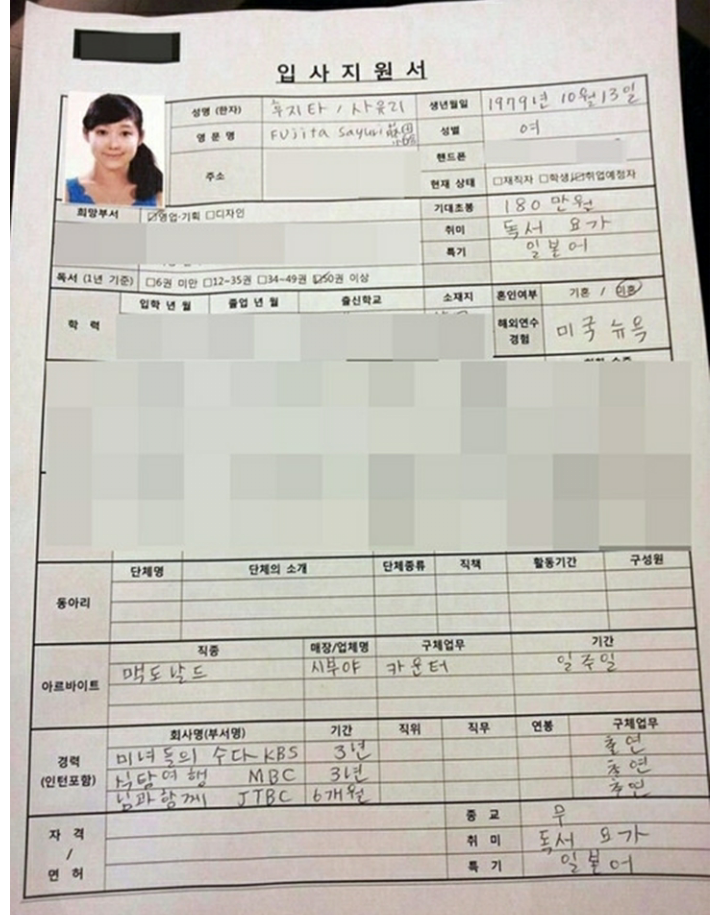 입사지원서
성명 (한자) 후지타 / 사유리 생년월일 1979년 10월 13일
영 문 명 Fujita Sayuri 성별 여
주소 핸드폰
현재 상태 □재직자 □학생 ☑취업예정자
희망부서 ☑영업·기획 □디자인 기대초봉 180 만원
취미 독서 요가
특기 일본어
독서 (1년 기준) □6권 미만 □12-35권 □34-49권 ☑50권 이상
학 력 입학 년 월 졸업 년 월 출신학교 소재지 혼인여부 기혼 / 미혼
해외연수 경험 미국 뉴욕
동아리 단체명 단체의 소개 단체종류 직책 활동기간 구성원
아르바이트 직종 매장/업체명 구체업무 기간
맥도날드 시부야 카운터 일주일
경력 (인턴포함) 회사명(부서명) 기간 직위 직무 연봉 구체업무
미녀들의 수다 KBS 3년 출연
식당여행 MBC 3년 출연
님과함께 JTBC 6개월 출연
자 격 / 면 허 종 교 무
취 미 독서 요가
특 기 일본어